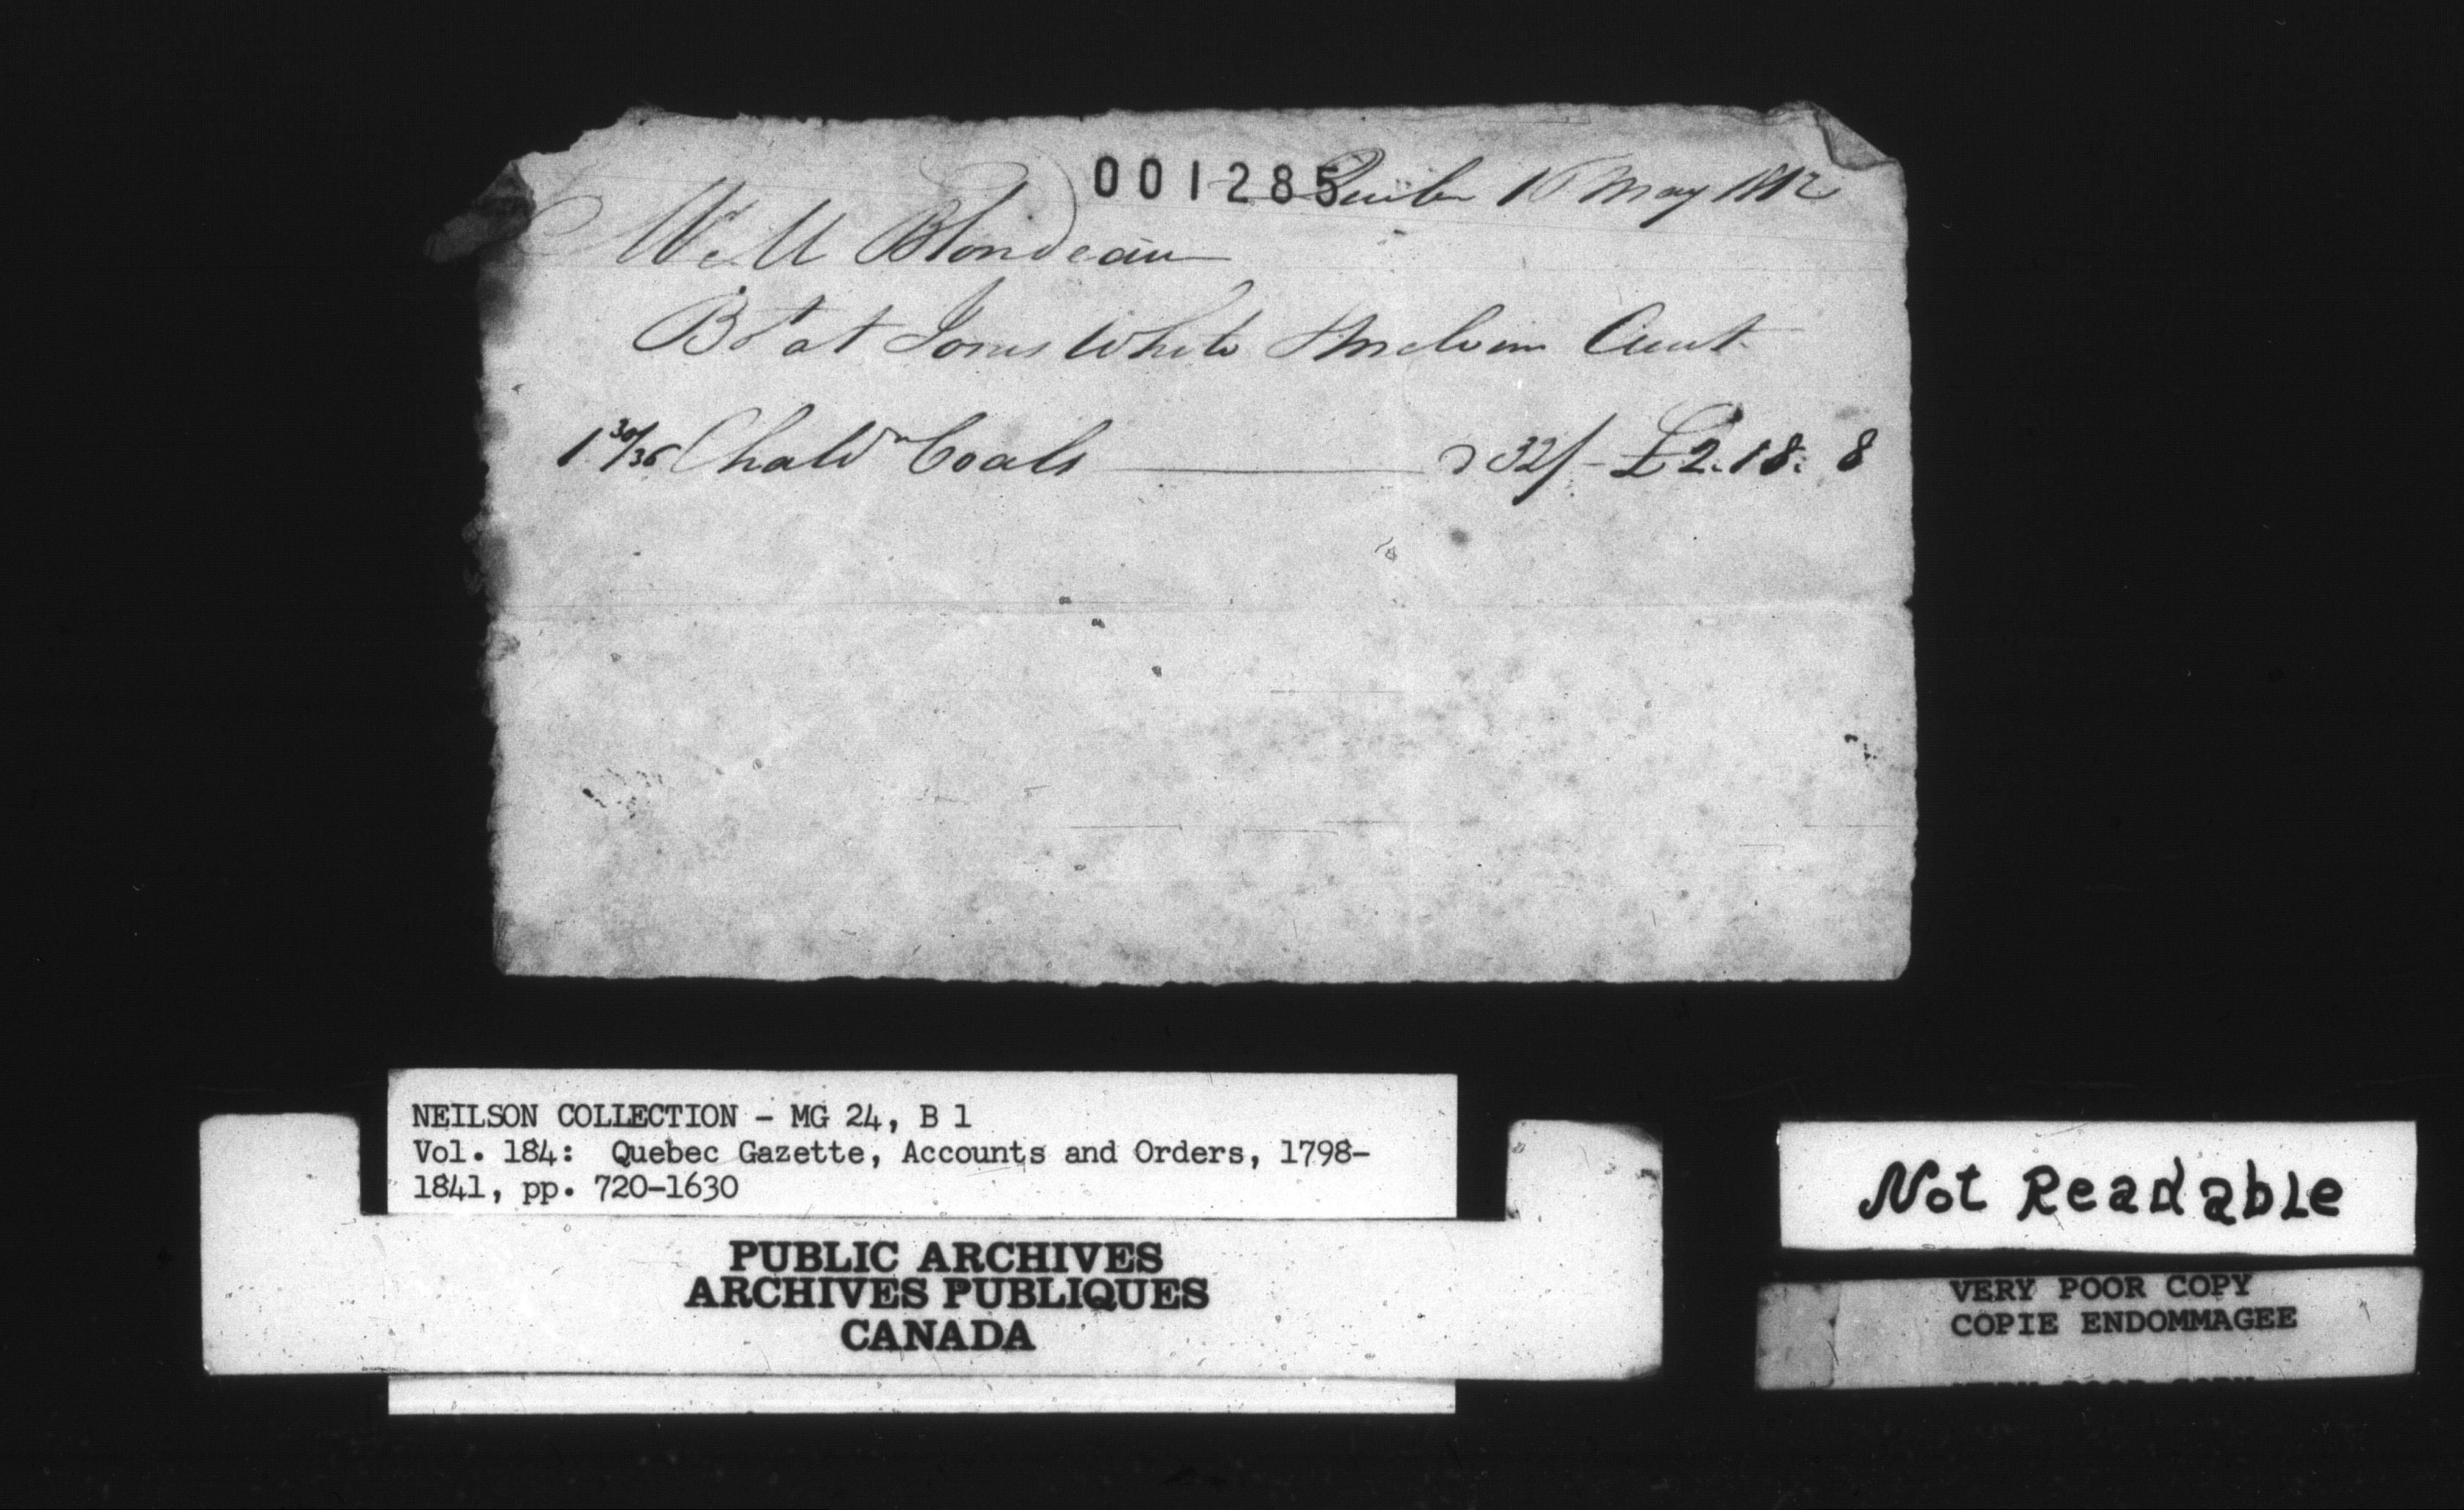 001285 Quebec 16 May 1812
Blondeau
Bot at Jones White & Melvin Auct
1 30/36 Chaldn Coals — 32/- £2.18.8
NEILSON COLLECTION - MG 24, B 1
Vol. 184: Quebec Gazette, Accounts and Orders, 1798-
1841, pp. 720-1630
PUBLIC ARCHIVES
ARCHIVES PUBLIQUES
CANADA
Not Readable
VERY POOR COPY
COPIE ENDOMMAGEE